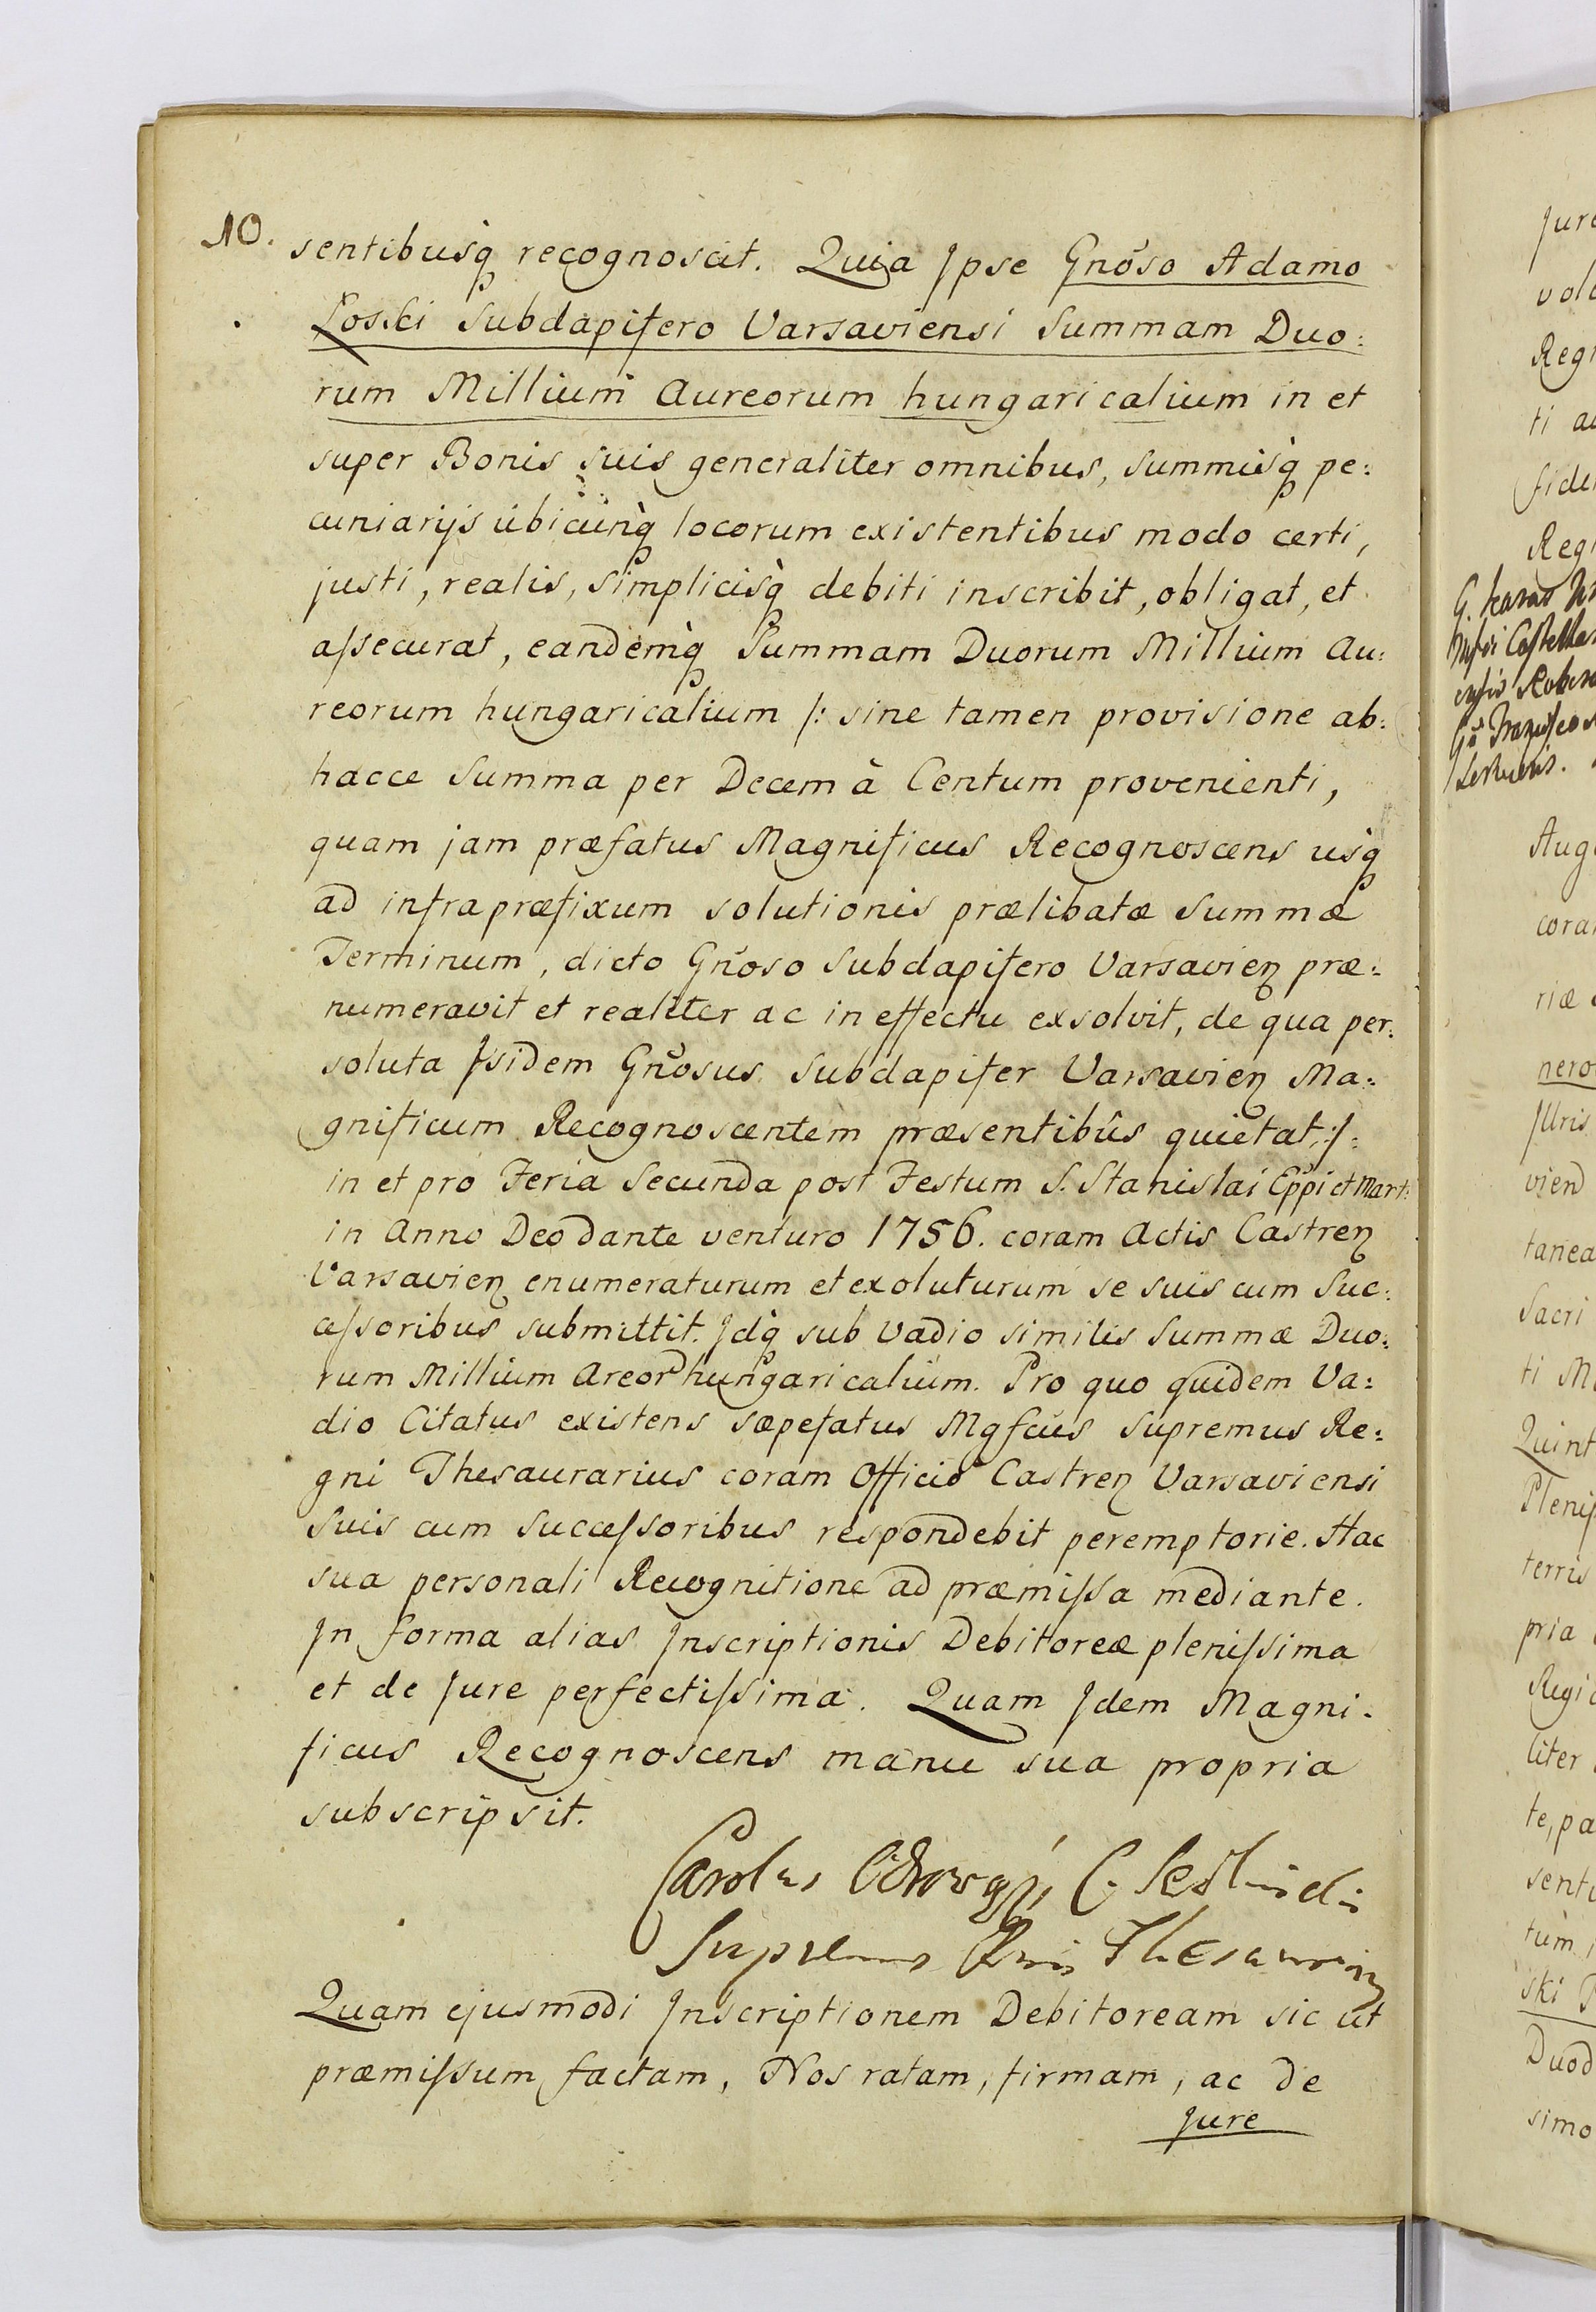 10.
sentibusq̀ recognoscit. Quia Jpse Gnõso Adamo
Łoski Subdapifero Varsaviensi Summam Duo:
rum Millium Aureorum hungaricalium in et
super Bonis suis generaliter omnibus, Summisq̀ pe:
cuniarijs ubicunq̀ locorum existentibus modo certi,
justi, realis, simplicisq̀ debiti inscribit, obligat, et
aſsecurat, eandemq̀ Summam Duorum Millium Au:
reorum hungaricalium /: sine tamen provisione ab:
hacce Summa per Decem à Centum provenienti,
quam jam præfatus Magnificus Recognoscens usq̀
ad infrapræfixum solutionis prælibatæ Summæ
Terminum, dicto Gnõso Subdapifero Varsavien̄ præ:
numeravit et realiter ac in effectu exsolvit, de qua per:
soluta Jsidem Gnõsus Subdapifer Varsavien̄ Ma:
gnificum Recognoscentem præsentibus quietat, :/:
in et pro Feria Secunda post Festum S. Stanislai Eppi et Mart:
in Anno Deo Dante venturo 1756. coram Actis Castren̄
Varsavien̄ enumeraturum et exoluturum se suis cum Suc:
ceſsoribus submittit. Jdq̀ sub Vadio similis Summæ Duo:
rum Millium Areor hungaricalium. Pro quo quidem Va:
dio Citatus existens sæpefatus Mgfcus Supremus Re:
gni Thesaurarius coram Officio Castren̄ Varsaviensi
Suis cum Succeſsoribus respondebit peremptorie. Hac
sua personali Recognitione ad præmiſsa mediante.
Jn forma alias Jnscriptionis Debitoreæ pleniſsima
et de Jure perfectiſsima. Quam Jdem Magni:
ficus Recognoscens manu sua propria
subscripsit.
Carolus C.
Supremus Thesaurariuz
Quam ejusmodi Jnscriptionem Debitoream sic ut
præmiſsum factam, Nos ratam, firmam, ac De
Jure